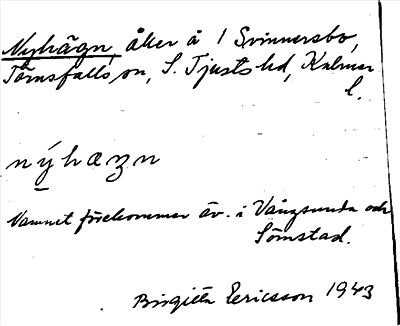 Nyhägn, åker å 1 Svinnersbo,
Törnsfalls sn, S. Tjusts hd, Kalmar
l.
nẏhæzn
Namnet förekommer äv. i Vångsunda och
Sömstad.
Birgitta Ericsson 1943